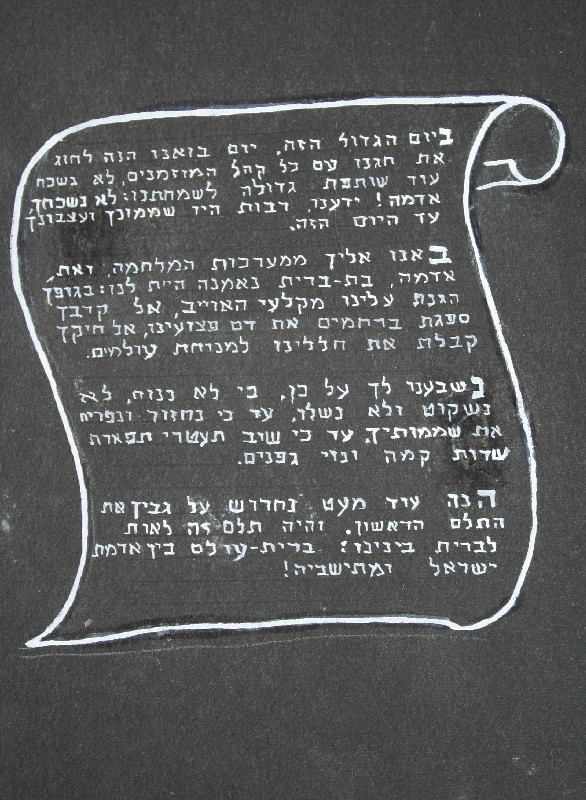 ביום הגדול הזה, יום בואנו הנה לחוג
את חגנו עם כל קהל המוזמנים, לא נשכח
עוד שותפת גדולה לשמחתנו: לא נשכחך,
אדמה! ידענו, רבות היו שממונך ועצבונך,
עד היום הזה.
באנו אליך ממערכות המלחמה, ואת,
אדמה, בת-ברית נאמנה היית לנו: בגופך
הגנת עלינו מקלעי האוייב, אל קרבך
ספגת ברחמים את דם פצועינו, אל חיקך
קבלת את חללינו למנוחת עולמים.
נשבענו לך על כן, כי לא ננוח, לא
נשקוט ולא נשלו, עד כי נחזור ונפריח
את שממותיך, עד כי שוב תעטרי תפארת
שדות קמה ונוי גפנים.
הנה עוד מעט נחרוש על גבך את
התלם הראשון. והיה תלם זה לאות
לברית בינינו: ברית-עולם בין אדמת
ישראל ומתישביה!